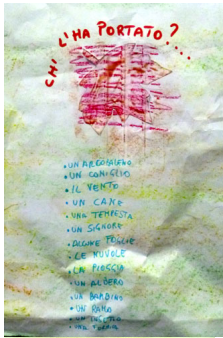 CHI L'HA PORTATO?....
• UN ARCOBALENO
• UN CONIGLIO
• IL VENTO
• UN CANE
• UNA TEMPESTA
• UN SIGNORE
• ALCUNE FOGLIE
• LE NUVOLE
• LA PIOGGIA
• UN ALBERO
• UN BAMBINO
• UN RAMO
• UN INSETTO
• UNA